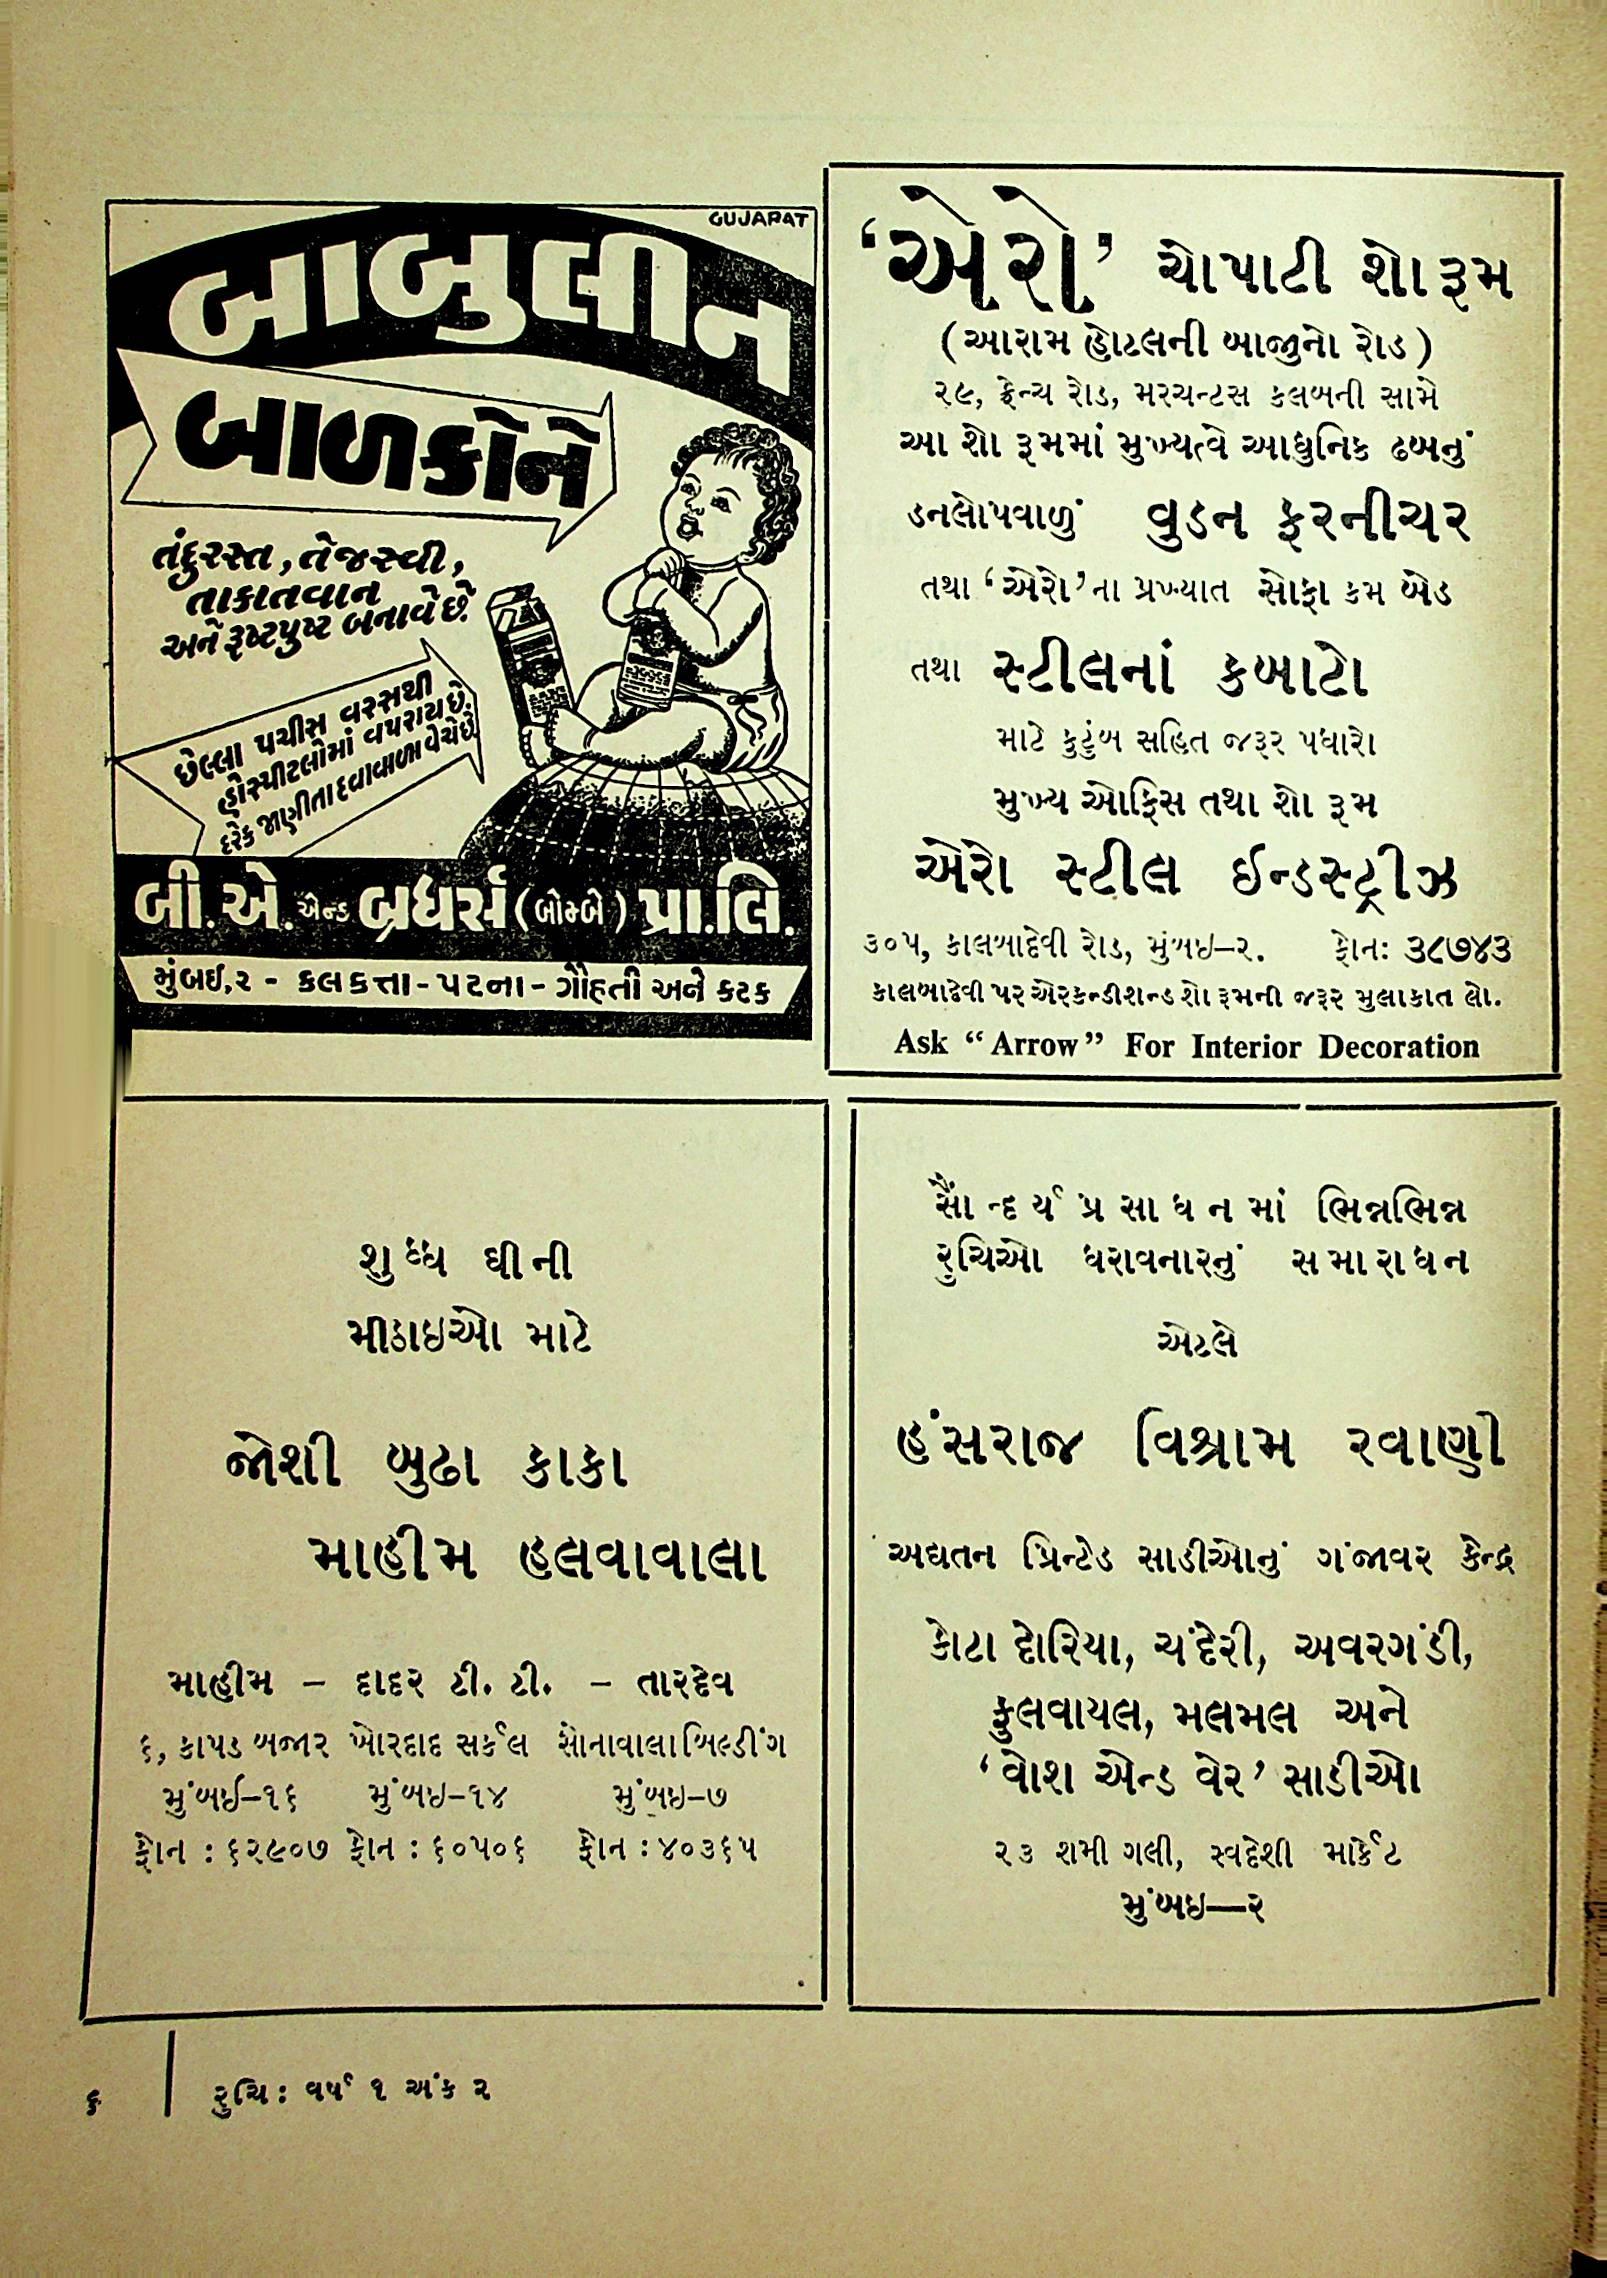 GUJARAT
બાબુલીન
બાળકોને
તંદુરસ્ત, તેજસ્વી,
તાકાતવાન
અને રૂષ્ટપુષ્ટ બનાવે છે.
છેલ્લા પચીસ વરસથી
હોસ્પીટલોમાં વપરાય છે.
દરેક જાણીતા દવાવાળા વેચે છે
બી. એ. એન્ડ બ્રધર્સ (બોમ્બે) પ્રા. લિ.
મુંબઈ, ૨ - કલકત્તા - પટના - ગૌહતી અને કટક
‘એરો’ ચોપાટી શો રૂમ
(આરામ હોટલની બાજુનો રોડ)
૨૯, ફ્રેન્ચ રોડ, મરચન્ટસ કલબની સામે
આ શો રૂમમાં મુખ્યત્વે આધુનિક ઢબનું
ડનલોપવાળું વુડન ફરનીચર
તથા ‘એરો’ના પ્રખ્યાત સોફા કમ બેડ
તથા સ્ટીલનાં કબાટો
માટે કુટુંબ સહિત જરૂર પધારો
મુખ્ય ઓફિસ તથા શો રૂમ
એરો સ્ટીલ ઈન્ડસ્ટ્રીઝ
૩૦૫, કાલબાદેવી રોડ, મુંબઇ–૨. ફોન: ૩૮૭૪૩
કાલબાદેવી પર એરકન્ડીશન્ડ શો રૂમની જરૂર મુલાકાત લો.
Ask “Arrow” For Interior Decoration
શુધ્ધ ઘીની
મીઠાઇઓ માટે
જોશી બુઢા કાકા
માહીમ હલવાવાલા
માહીમ – દાદર ટી. ટી. – તારદેવ
૬, કાપડ બજાર ખોરદાદ સર્કલ સોનાવાલા બિલ્ડીંગ
મુંબઈ–૧૬ મુંબઇ–૧૪ મુંબઇ–૭
ફોન : ૬૨૯૦૭ ફોન : ૬૦૫૦૬ ફોન : ૪૦૩૬૫
સૌન્દર્ય પ્રસાધનમાં ભિન્નભિન્ન
રુચિઓ ધરાવનારનું સમારાધન
એટલે
હંસરાજ વિશ્રામ રવાણી
અદ્યતન પ્રિન્ટેડ સાડીઓનું ગંજાવર કેન્દ્ર
કોટા દોરિયા, ચંદેરી, અવરગંડી,
ફુલવાયલ, મલમલ અને
‘વોશ એન્ડ વેર’ સાડીઓ
૨૩ શમી ગલી, સ્વદેશી માર્કેટ
મુંબઇ—૨
૬ રુચિ: વર્ષ ૧ અંક ૨